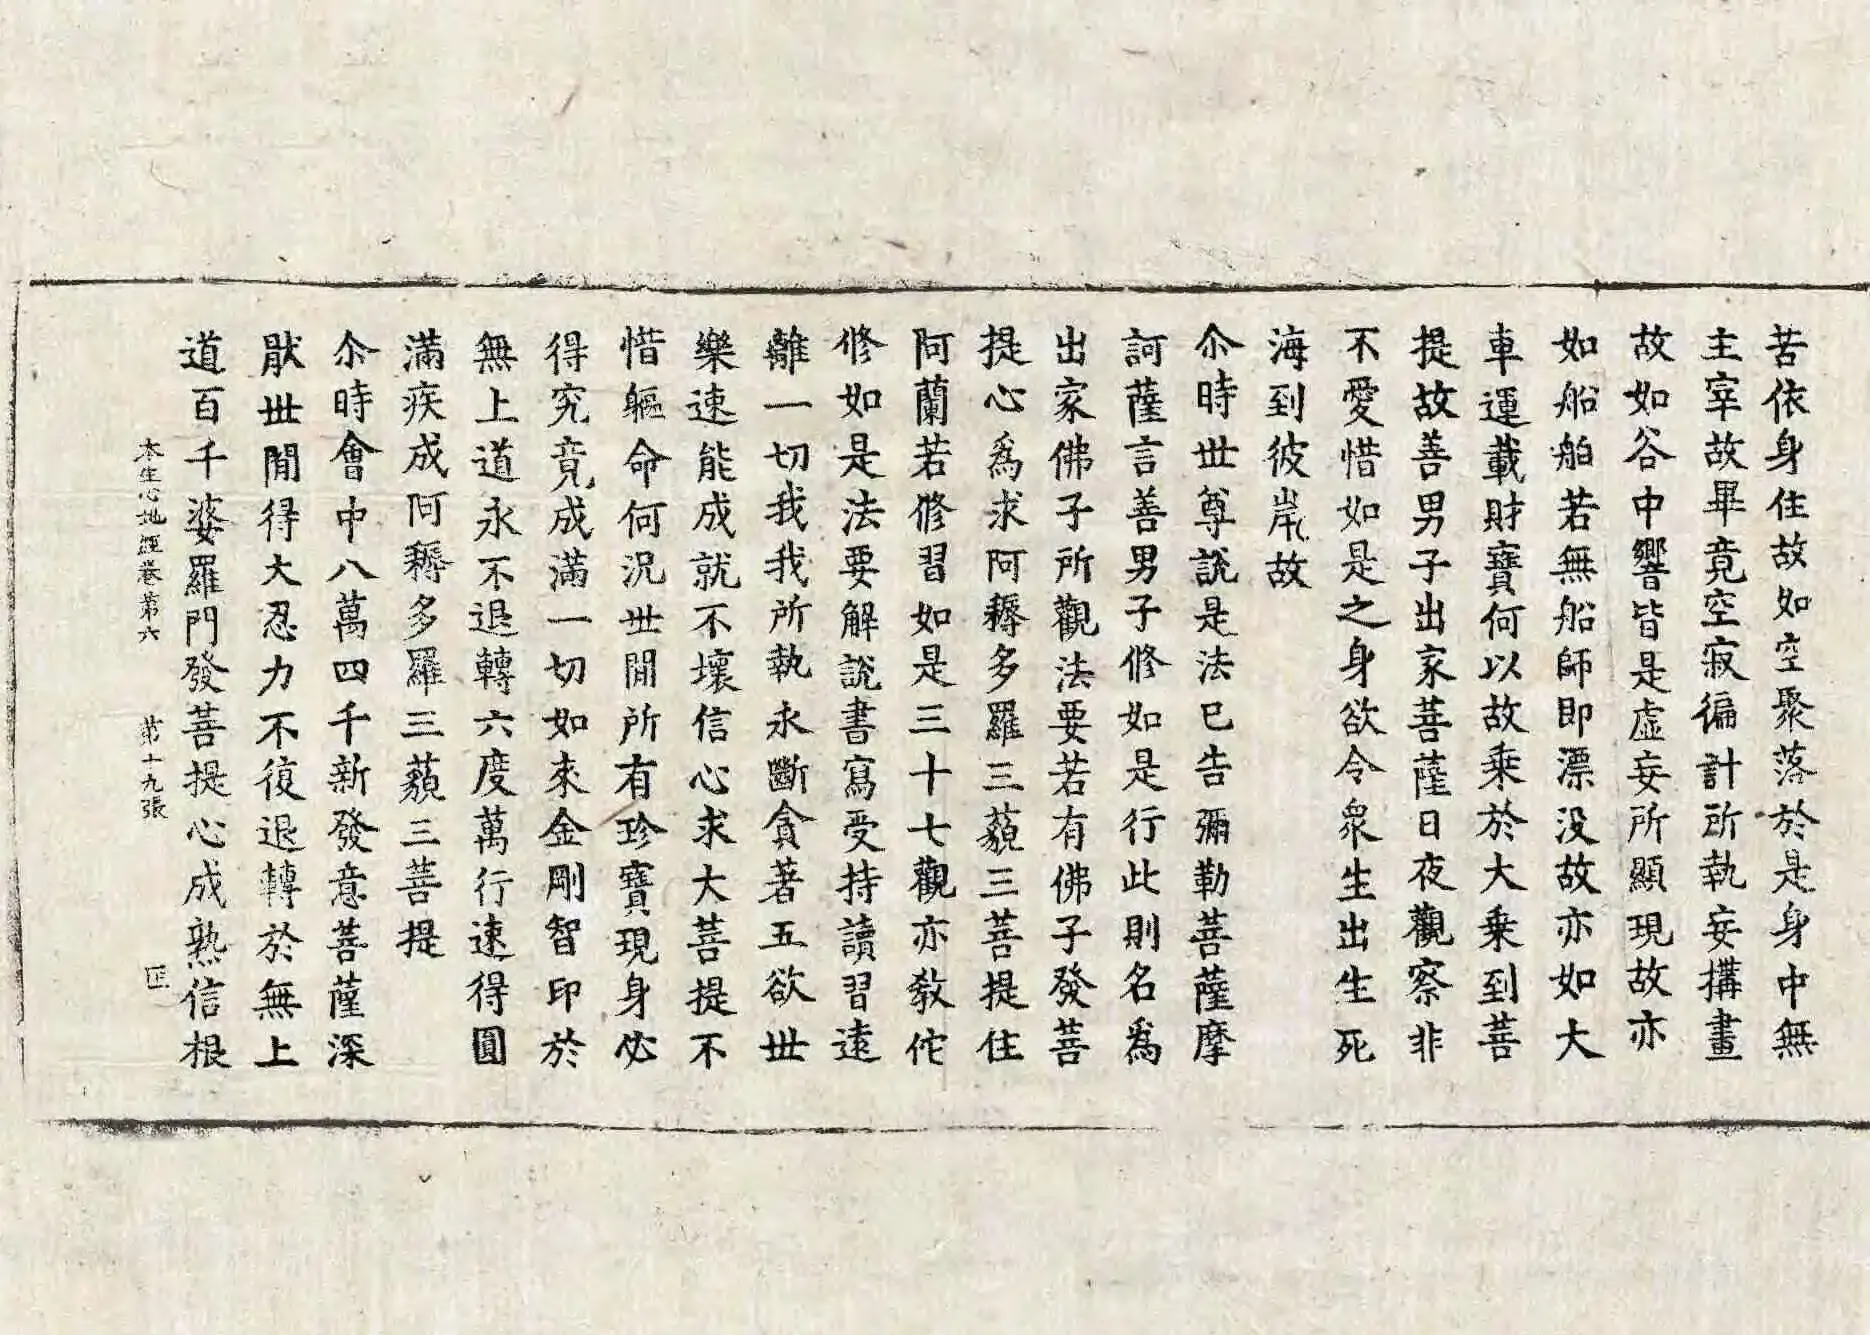 苦依身住故如空聚落於是身中無
主宰故畢竟空寂徧計所執妄搆畫
故如谷中響皆是虛妄所顯現故亦
如船舶若無船師即漂没故亦如大
車運載財寶何以故乘於大乘到菩
提故善男子出家菩薩日夜觀察非
不愛惜如是之身欲令衆生出生死
海到彼岸故
尒時世尊說是法已告彌勒菩薩摩
訶薩言善男子修如是行此則名爲
出家佛子所觀法要若有佛子發菩
提心爲求阿耨多羅三藐三菩提住
阿蘭若修習如是三十七觀亦教佗
修如是法要解說書寫受持讀習遠
離一切我我所執永斷貪著五欲世
樂速能成就不壞信心求大菩提不
惜軀命何況世間所有珍寶現身必
得究竟成滿一切如來金剛智印於
無上道永不退轉六度萬行速得圓
滿疾成阿耨多羅三藐三菩提
尒時會中八萬四千新發意菩薩深
猒世間得大忍力不復退轉於無上
道百千婆羅門發菩提心成熟信根
本生心地經卷第六 第十九張